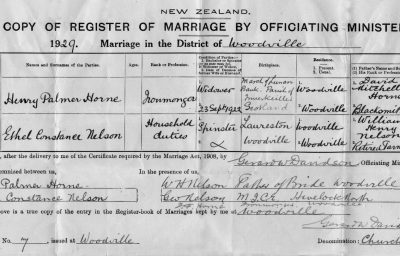 NEW ZEALAND.
COPY OF REGISTER OF MARRIAGE BY OFFICIATING MINISTER
1929. Marriage in the District of Woodville
Names and Surnames of the Parties. Ages. Rank or Profession. Birthplace. Residence.
1. Present. 2. Usual.
Henry Palmer Horne Ironmonger Widower 23 Sept 1922 Scotland Woodville Woodville David Mitchell Horne Blacksmith
Ethel Constance Nelson Household duties Spinster Woodville Woodville Woodville William Henry Nelson Retired
, after the delivery to me of the Certificate required by the Marriage Act, 1908, by Gerard W Davidson Officiating Mini
Palmer Horne W H Nelson Father of Bride Woodville
Constance Nelson Geo Nelson Havelock North
ove is a true copy of the entry in the Register-book of Marriages kept by me at Woodville
No. 7, issued at Woodville Denomination: Church